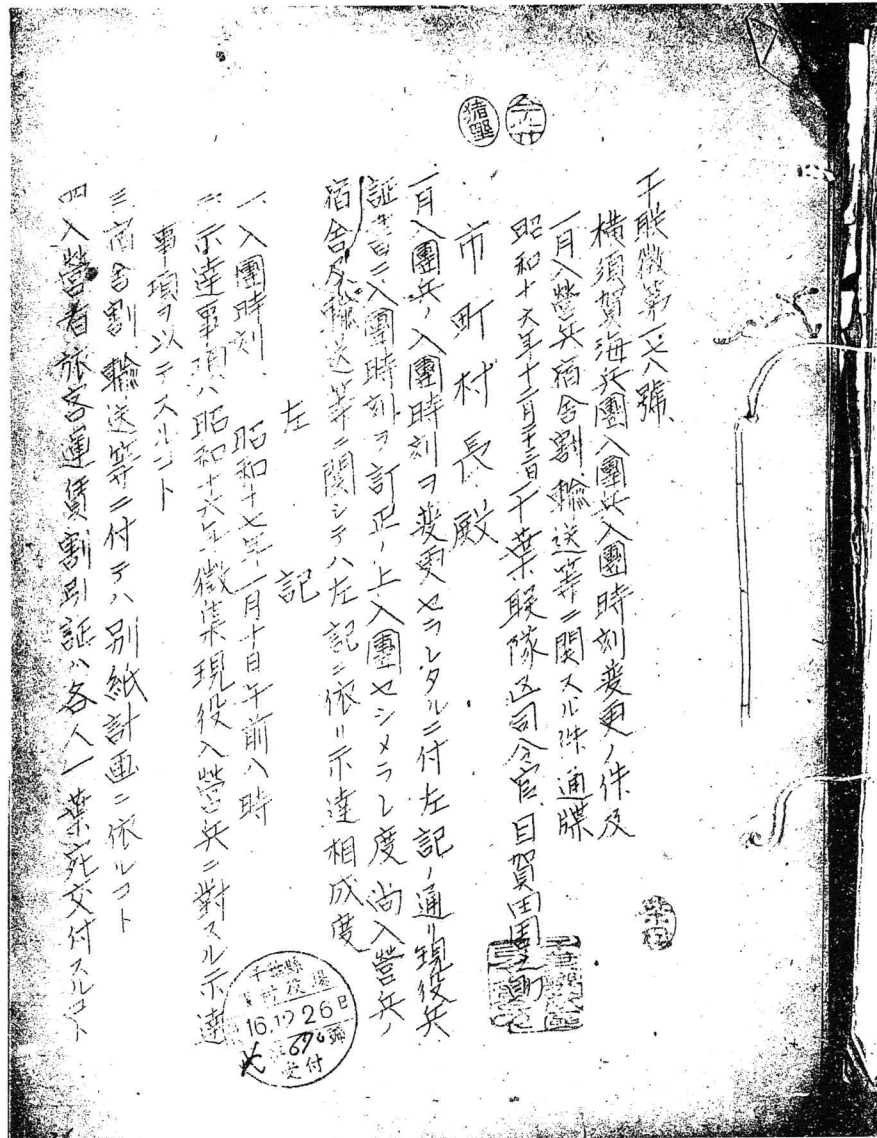 千聯徴第一六八號
横須賀海兵團入團兵入團時刻変更ノ件及
一月入營兵宿舎割輸送等ニ関スル件通牒
昭和十六年十二月二十三日千葉聯隊区司令官目賀田周之助
市町村長殿
一月入團兵ノ入團時刻ヲ変更セラレタルニ付左記ノ通リ現役兵
証書ニ入團時刻ヲ訂正ノ上入團セシメラレ度尚入營兵ノ
宿舎及輸送等ニ関シテハ左記ニ依リ示達相成度
左記
一、入團時刻、昭和十七年一月十日午前八時
二、示達事項ハ昭和十六年徴集現役入營兵ニ對スル示達
事項ヲ以テスルコト
三、宿舎割、輸送等ニ付テハ別紙計画ニ依ルコト
四、入營者旅客運賃割引証ハ各人一葉宛交付スルコト
千葉縣
村役場
16.12.26日
受付